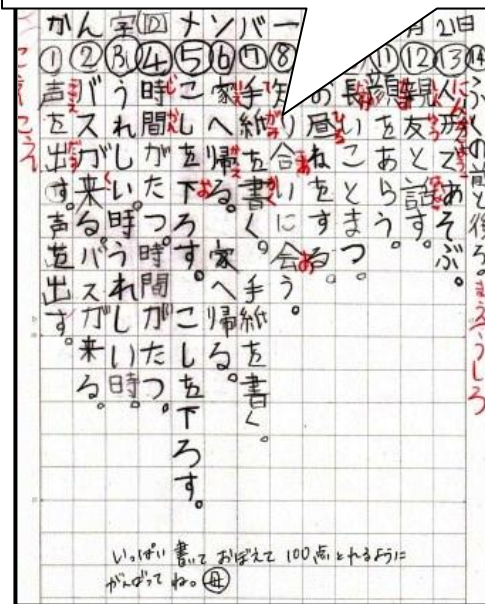 かん字 10 メンバー 月 21日
① 声を出す。声を出す。
② バスが来る。バスが来る。
③ うれしい時。うれしい時。
④ 時間がたつ。時間がたつ。
⑤ こしを下ろす。こしを下ろす。
⑥ 家へ帰る。家へ帰る。
⑦ 手紙を書く。手紙を書く。
⑧ 知り合いに会う。
昼ねをする。
長いことまつ。
⑪ 顔をあらう。
⑫ 親友と話す。
⑬ 人形であそぶ。
⑭ ふくの前と後ろ。
まえうしろ
いっぱい書いておぼえて100点とれるように
がんばってね。母